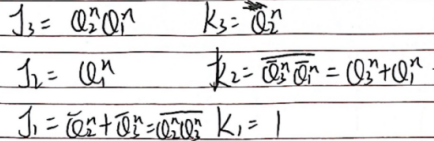 J₃ = Q₂ⁿQ₁ⁿ K₃ = Q₂ⁿ
J₂ = Q₁ⁿ K₂ = \overline{\overline{Q₃ⁿ} \overline{Q₁ⁿ}} = Q₃ⁿ+Q₁ⁿ
J₁ = \overline{Q₂ⁿ}+\overline{Q₃ⁿ}=\overline{Q₂ⁿQ₃ⁿ} K₁ = 1